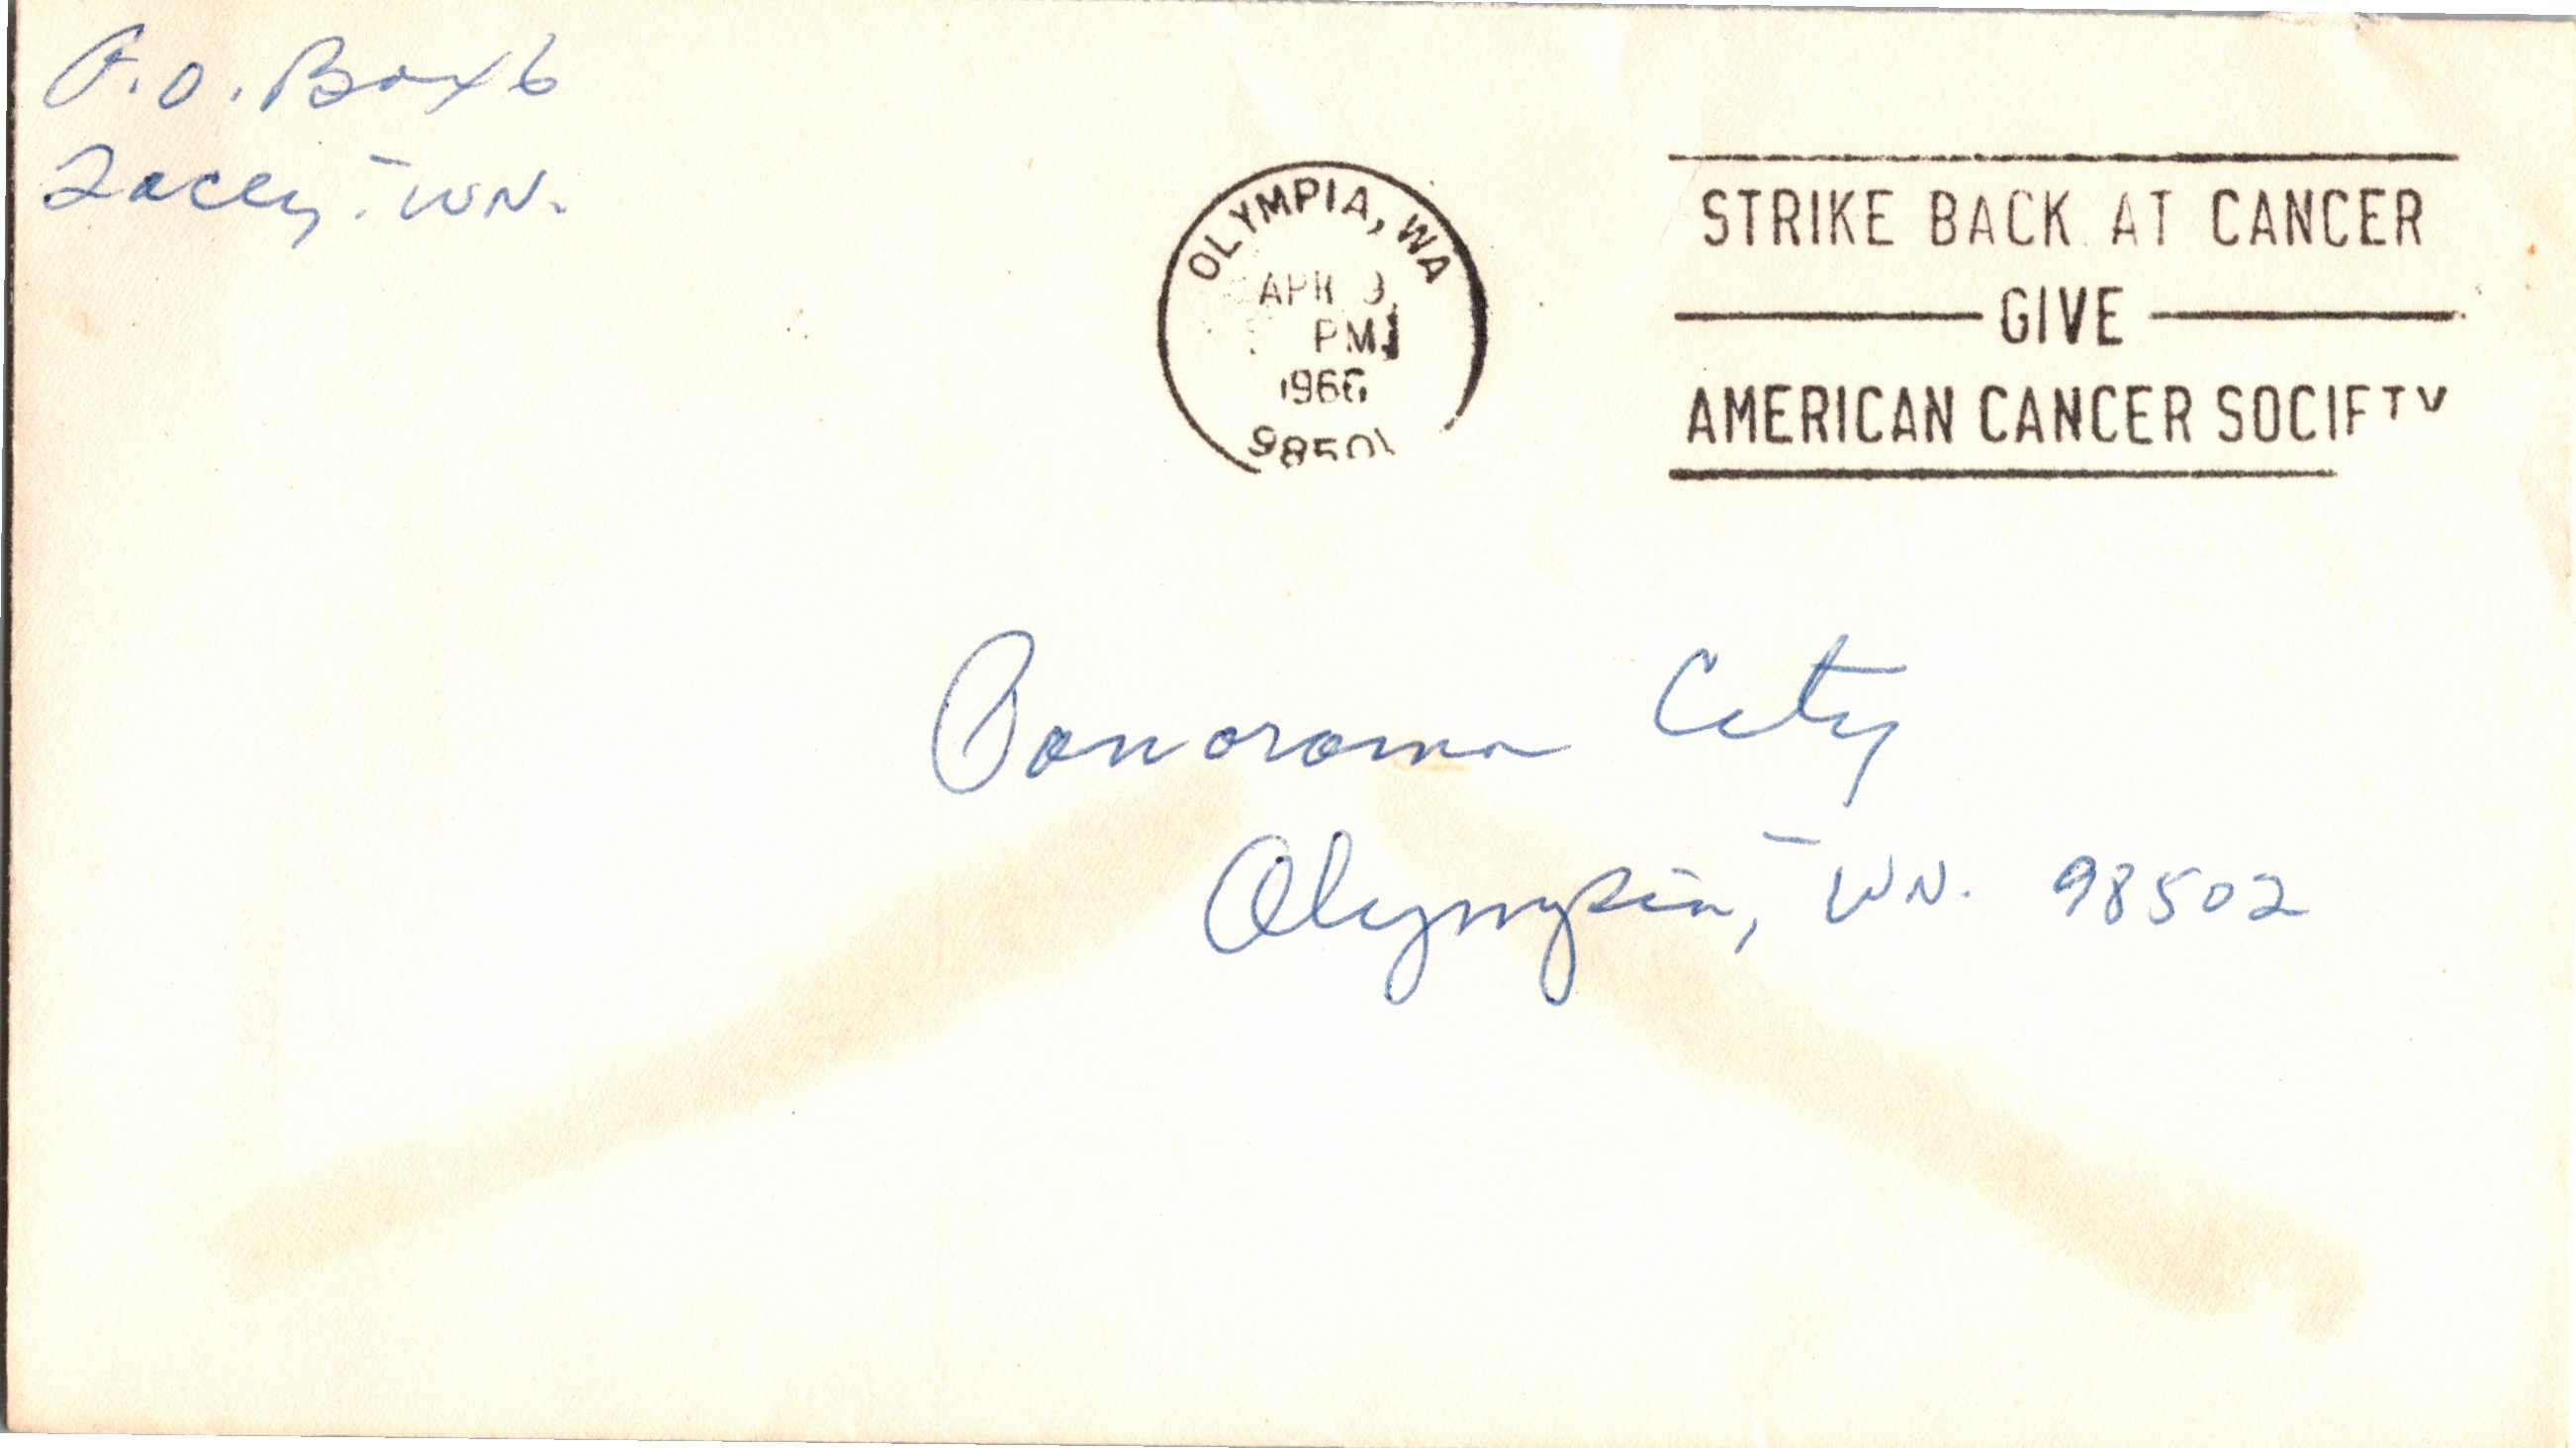 P.O. Box 6
Lacey, WN.
OLYMPIA, WA
APR 9
PM
1966
98501
STRIKE BACK AT CANCER
GIVE
AMERICAN CANCER SOCIETY
Panorama City
Olympia, WN. 98502